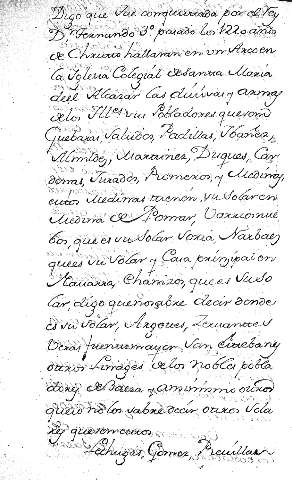 Digo que fue conquistada por el Rey
D. Fernando 3º pasado los 1220 años
de Christo hallaran en un Arco en
la Iglesia Colegial de Santa Maria
del Alcazar las divisas y armas
de los Ill.es sus Pobladores que son
Guebaras, Salidos, Padillas, Ibañez,
Mimildez, Marannes, Duques, Car
denas, Jurados, Romeros, y Medinas,
estos Medinas tienen su Solar en
Medina de Pomar,
bos, que es su Solar Soria, Narbaez
que es su Solar y Casa prinzipal en
Navarra, Chamizo, que es su so
lar, digo que no sabre decir donde
es su Solar, Argotes, Zervantes
otros fuenmayor San Estebane y
otros Linages de los nobles pobla
dores de Baeza y asimismo otros
que io no los sabre decir otros Sola
res que son estos
Lechugas, Gomez,